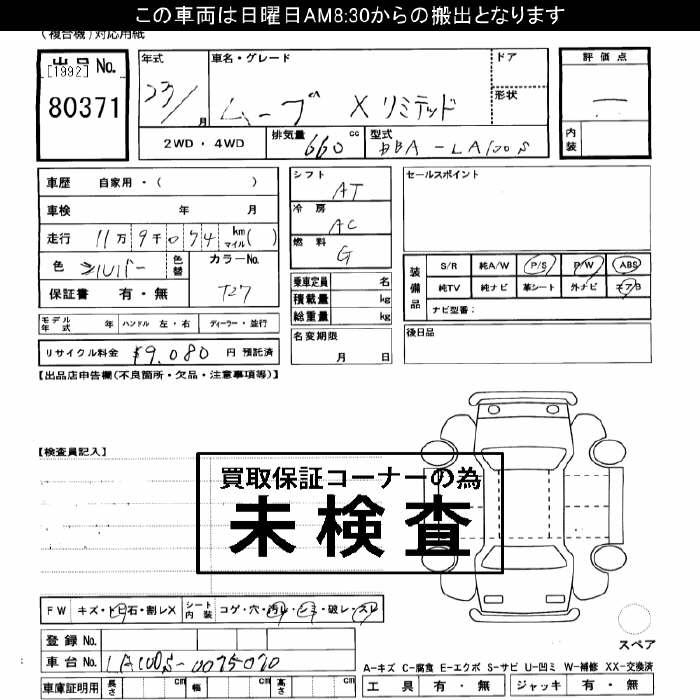 この車両は日曜日AM8:30からの搬出となります
(複合機)対応用紙
出品 No.
[1992]
80371
年式 23/ 月
車名・グレード ムーブ X リミテッド
ドア
形状
2WD・4WD
排気量 660 cc
型式 DBA-LA100S
評価点
内装
車歴 自家用・( )
車検 年 月
走行 11万 9千 074 km マイル( )
色 シルバー
色替
カラーNo. T27
保証書 有・無
シフト AT
冷房 AC
燃料 G
乗車定員 名
積載量 kg
総重量 kg
セールスポイント
装備品
S/R 純A/W P/S P/W ABS
純TV 純ナビ 革シート 外ナビ エアB
ナビ型番:
モデル年式 年 ハンドル 左・右 ディーラー・並行
名変期限 月 日
後日品
リサイクル料金 ¥9,080 円 預託済
【出品店申告欄(不良箇所・欠品・注意事項等)】
【検査員記入】
買取保証コーナーの為
未検査
FW キズ・トビ石・割レX シート内装 コゲ・穴・汚レ・シミ・破レ・スレ
スペア
登録 No.
車台 No. LA100S-0075070
A-キズ C-腐食 E-エクボ S-サビ U-凹ミ W-補修 XX-交換済
車庫証明用 長さ cm 幅 cm 高さ cm
工具 有・無 ジャッキ 有・無